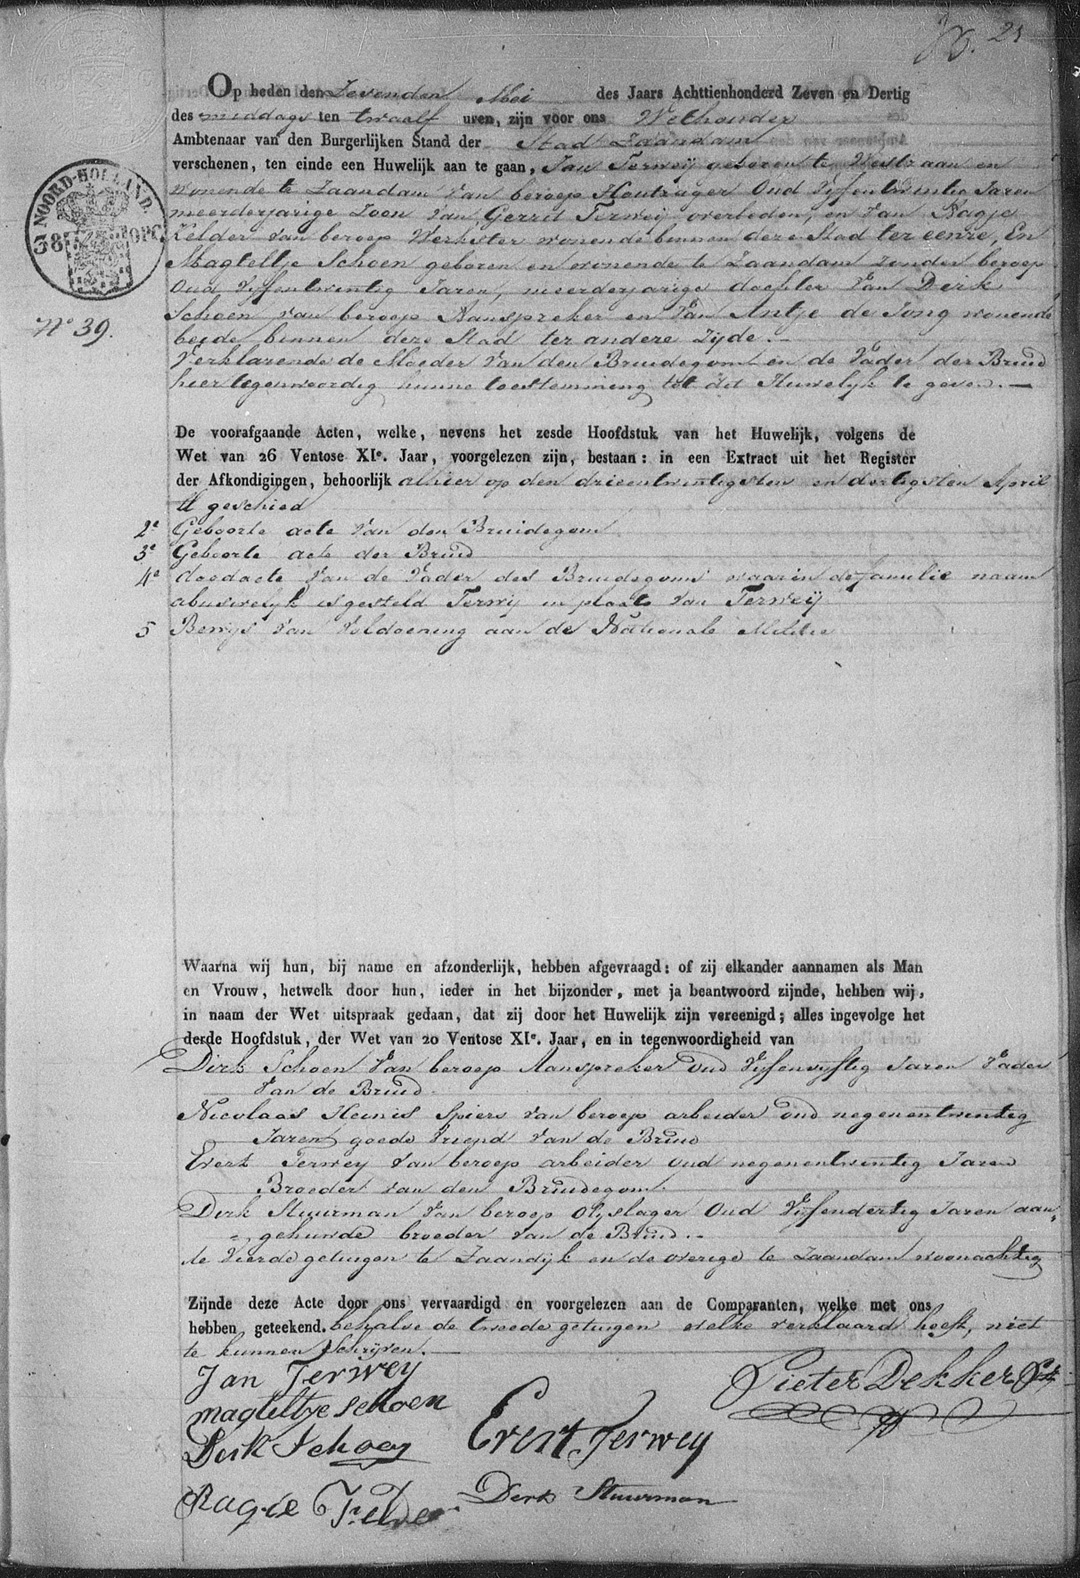 21
Op heden den Zevenden Mei des Jaars Achttienhonderd Zeven en Dertig
des middags ten twaalf uren, zijn voor ons Wethouder
Ambtenaar van den Burgerlijken Stand der Stad Zaandam
verschenen, ten einde een Huwelijk aan te gaan, Jan Terweij geboren te Westzaan en
wonende te Zaandam van beroep Houtzager Oud Vijfentwintig Jaren
meerderjarige Zoon van Gerrit Terweij overleden, en van Aagje
Kelder van beroep Werkster wonende binnen deze Stad ter eenre, En
Magteltje Schoen geboren en wonende te Zaandam zonder beroep
NOORD-HOLLAND.
38 OPC.
Oud Vijfentwintig Jaren, meerderjarige dochter van Dirk
Schoen van beroep Aanspreker en van Antje de Jong wonende
No 39.
beide binnen deze Stad ter andere Zijde.
Verklarende de Moeder van den Bruidegom en de Vader der Bruid
hier tegenwoordig hunne toestemming tot dit Huwelijk te geven.
De voorafgaande Acten, welke, nevens het zesde Hoofdstuk van het Huwelijk, volgens de
Wet van 26 Ventose XIe. Jaar, voorgelezen zijn, bestaan: in een Extract uit het Register
der Afkondigingen, behoorlijk alhier op den drieentwintigsten en dertigsten April
ll geschied
2e Geboorte acte van den Bruidegom
3e Geboorte acte der Bruid
4e doodacte van de Vader des Bruidegoms waarin de familie naam
abusivelijk is gesteld Terwij in plaats van Terweij
5 Bewijs van Voldoening aan de Nationale Militie
Waarna wij hun, bij name en afzonderlijk, hebben afgevraagd: of zij elkander aannamen als Man
en Vrouw, hetwelk door hun, ieder in het bijzonder, met ja beantwoord zijnde, hebben wij,
in naam der Wet uitspraak gedaan, dat zij door het Huwelijk zijn vereenigd; alles ingevolge het
derde Hoofdstuk, der Wet van 20 Ventose XIe. Jaar, en in tegenwoordigheid van
Dirk Schoen van beroep Aanspreker oud Vijfenvijftig Jaren Vader
van de Bruid.
Nicolaas Heinis Spiers van beroep arbeider oud negenentwintig
Jaren goede vriend van de Bruid
Evert Terwey van beroep arbeider oud negenentwintig Jaren
Broeder van den Bruidegom.
Dirk Stuurman van beroep Olijslager Oud Vijfendertig Jaren aan
gehuwde broeder van de Bruid.
de vierde getuigen te Zaandijk en de overige te Zaandam woonachtig
Zijnde deze Acte door ons vervaardigd en voorgelezen aan de Comparanten, welke met ons
hebben geteekend. behalve de tweede getuigen welke verklaard heeft, niet
te kunnen Schrijven.
Jan Terwey
Pieter Dekker
magteltje schoen
Dirk Schoen
Evert Terwey
Aagie Kelder
Dirk Stuurman